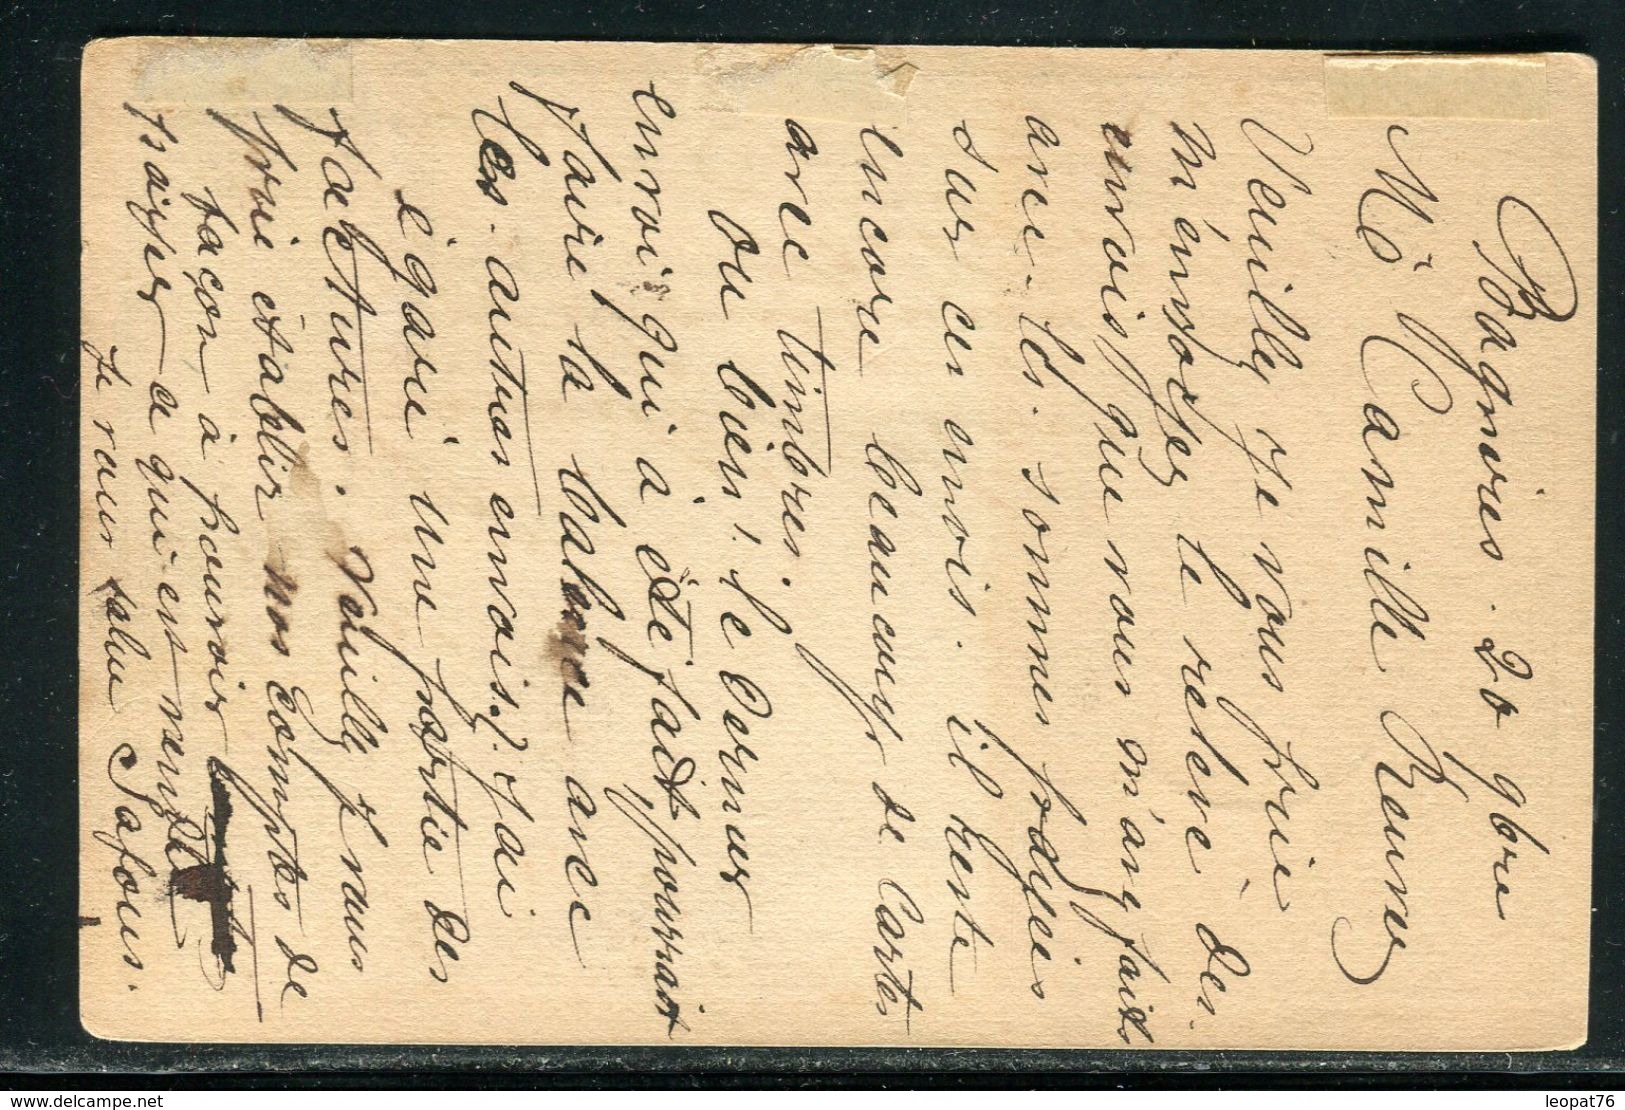 Bagnères. 20 9bre
Mr Camille Reumy
Veuillez je vous prie
m'envoyer le relevé des
envois que vous m'avez faits
avec les sommes payées
sur ces envois. il reste
encore beaucoup de Cartes
avec timbres.
ou bien! le dernier
envoi qui a été fait pourrait
faire la balance avec
les autres envois? J'ai
égaré une partie des
factures. Veuillez vous
prie établir nos Comptes de
façon à pouvoir
payer a qui est
Je vous salue Safous.
delcampe.net
leopat76